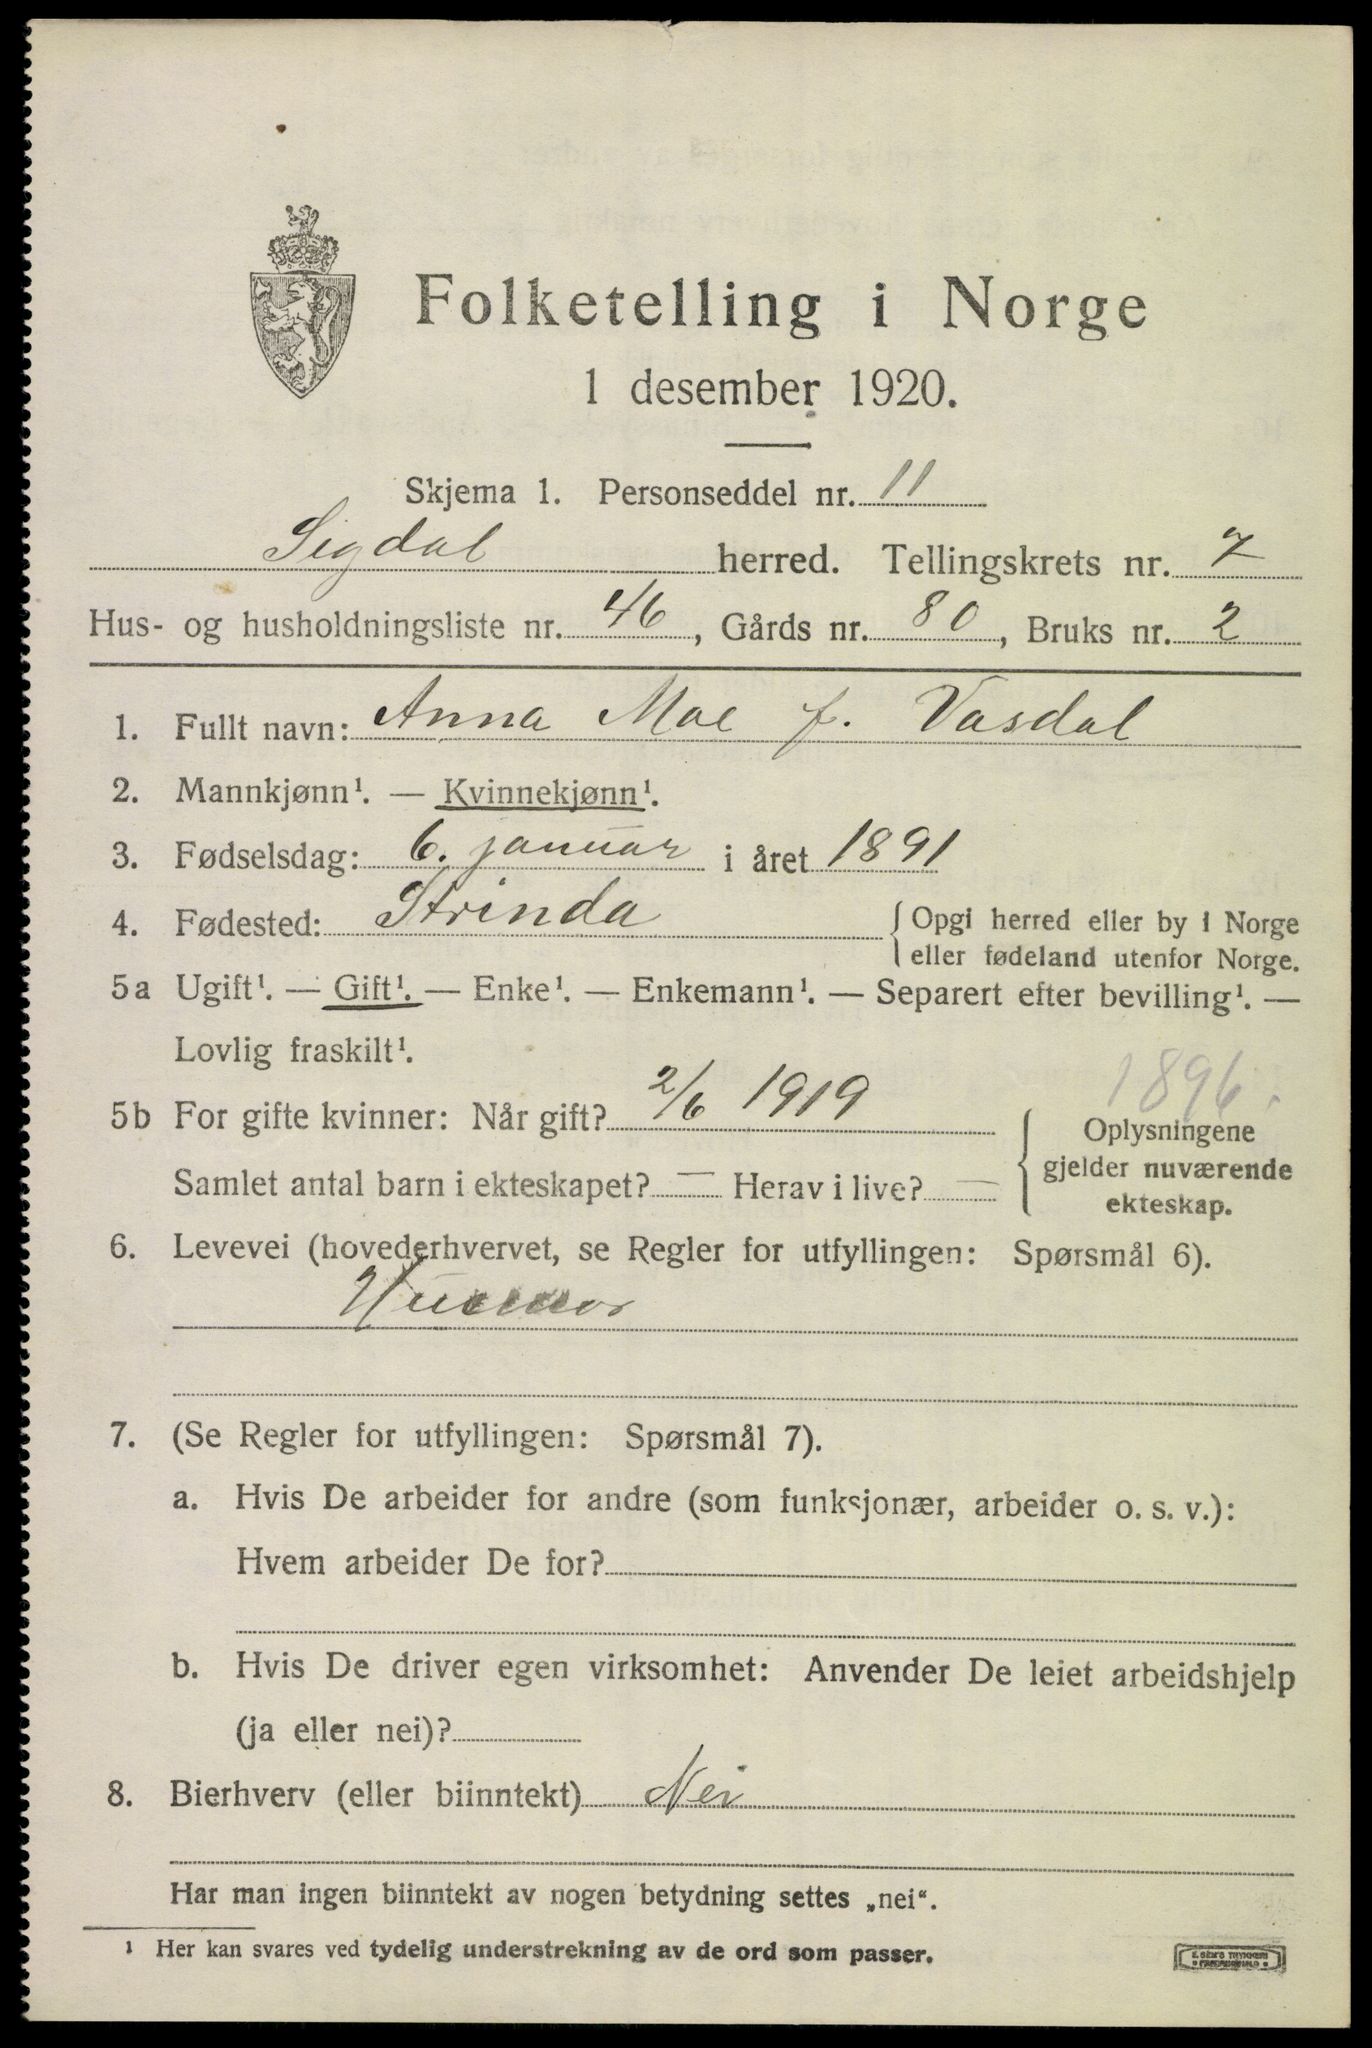 Folketelling i Norge
1 desember 1920.
Skjema 1. Personseddel nr. 11
Sigdal herred. Tellingskrets nr. 7
Hus- og husholdningsliste nr. 46, Gårds nr. 80, Bruks nr. 2
1. Fullt navn: Anna Moe f. Vasdal
2. Mannkjønn¹. — Kvinnekjønn¹.
3. Fødselsdag: 6. januar i året 1891
4. Fødested: Strinda { Opgi herred eller by i Norge
eller fødeland utenfor Norge.
5a Ugift¹. — Gift¹. — Enke¹. — Enkemann¹. — Separert efter bevilling¹. —
Lovlig fraskilt¹.
1896.
5b For gifte kvinner: Når gift? 2/6 1919
Samlet antal barn i ekteskapet? — Herav i live? —
Oplysningene
gjelder nuværende
ekteskap.
6. Levevei (hovederhvervet, se Regler for utfyllingen: Spørsmål 6).
Husmor
7. (Se Regler for utfyllingen: Spørsmål 7).
a. Hvis De arbeider for andre (som funksjonær, arbeider o. s. v.):
Hvem arbeider De for?
b. Hvis De driver egen virksomhet: Anvender De leiet arbeidshjelp
(ja eller nei)?
8. Bierhverv (eller biinntekt) Nei
Har man ingen biinntekt av nogen betydning settes „nei“.
¹ Her kan svares ved tydelig understrekning av de ord som passer.